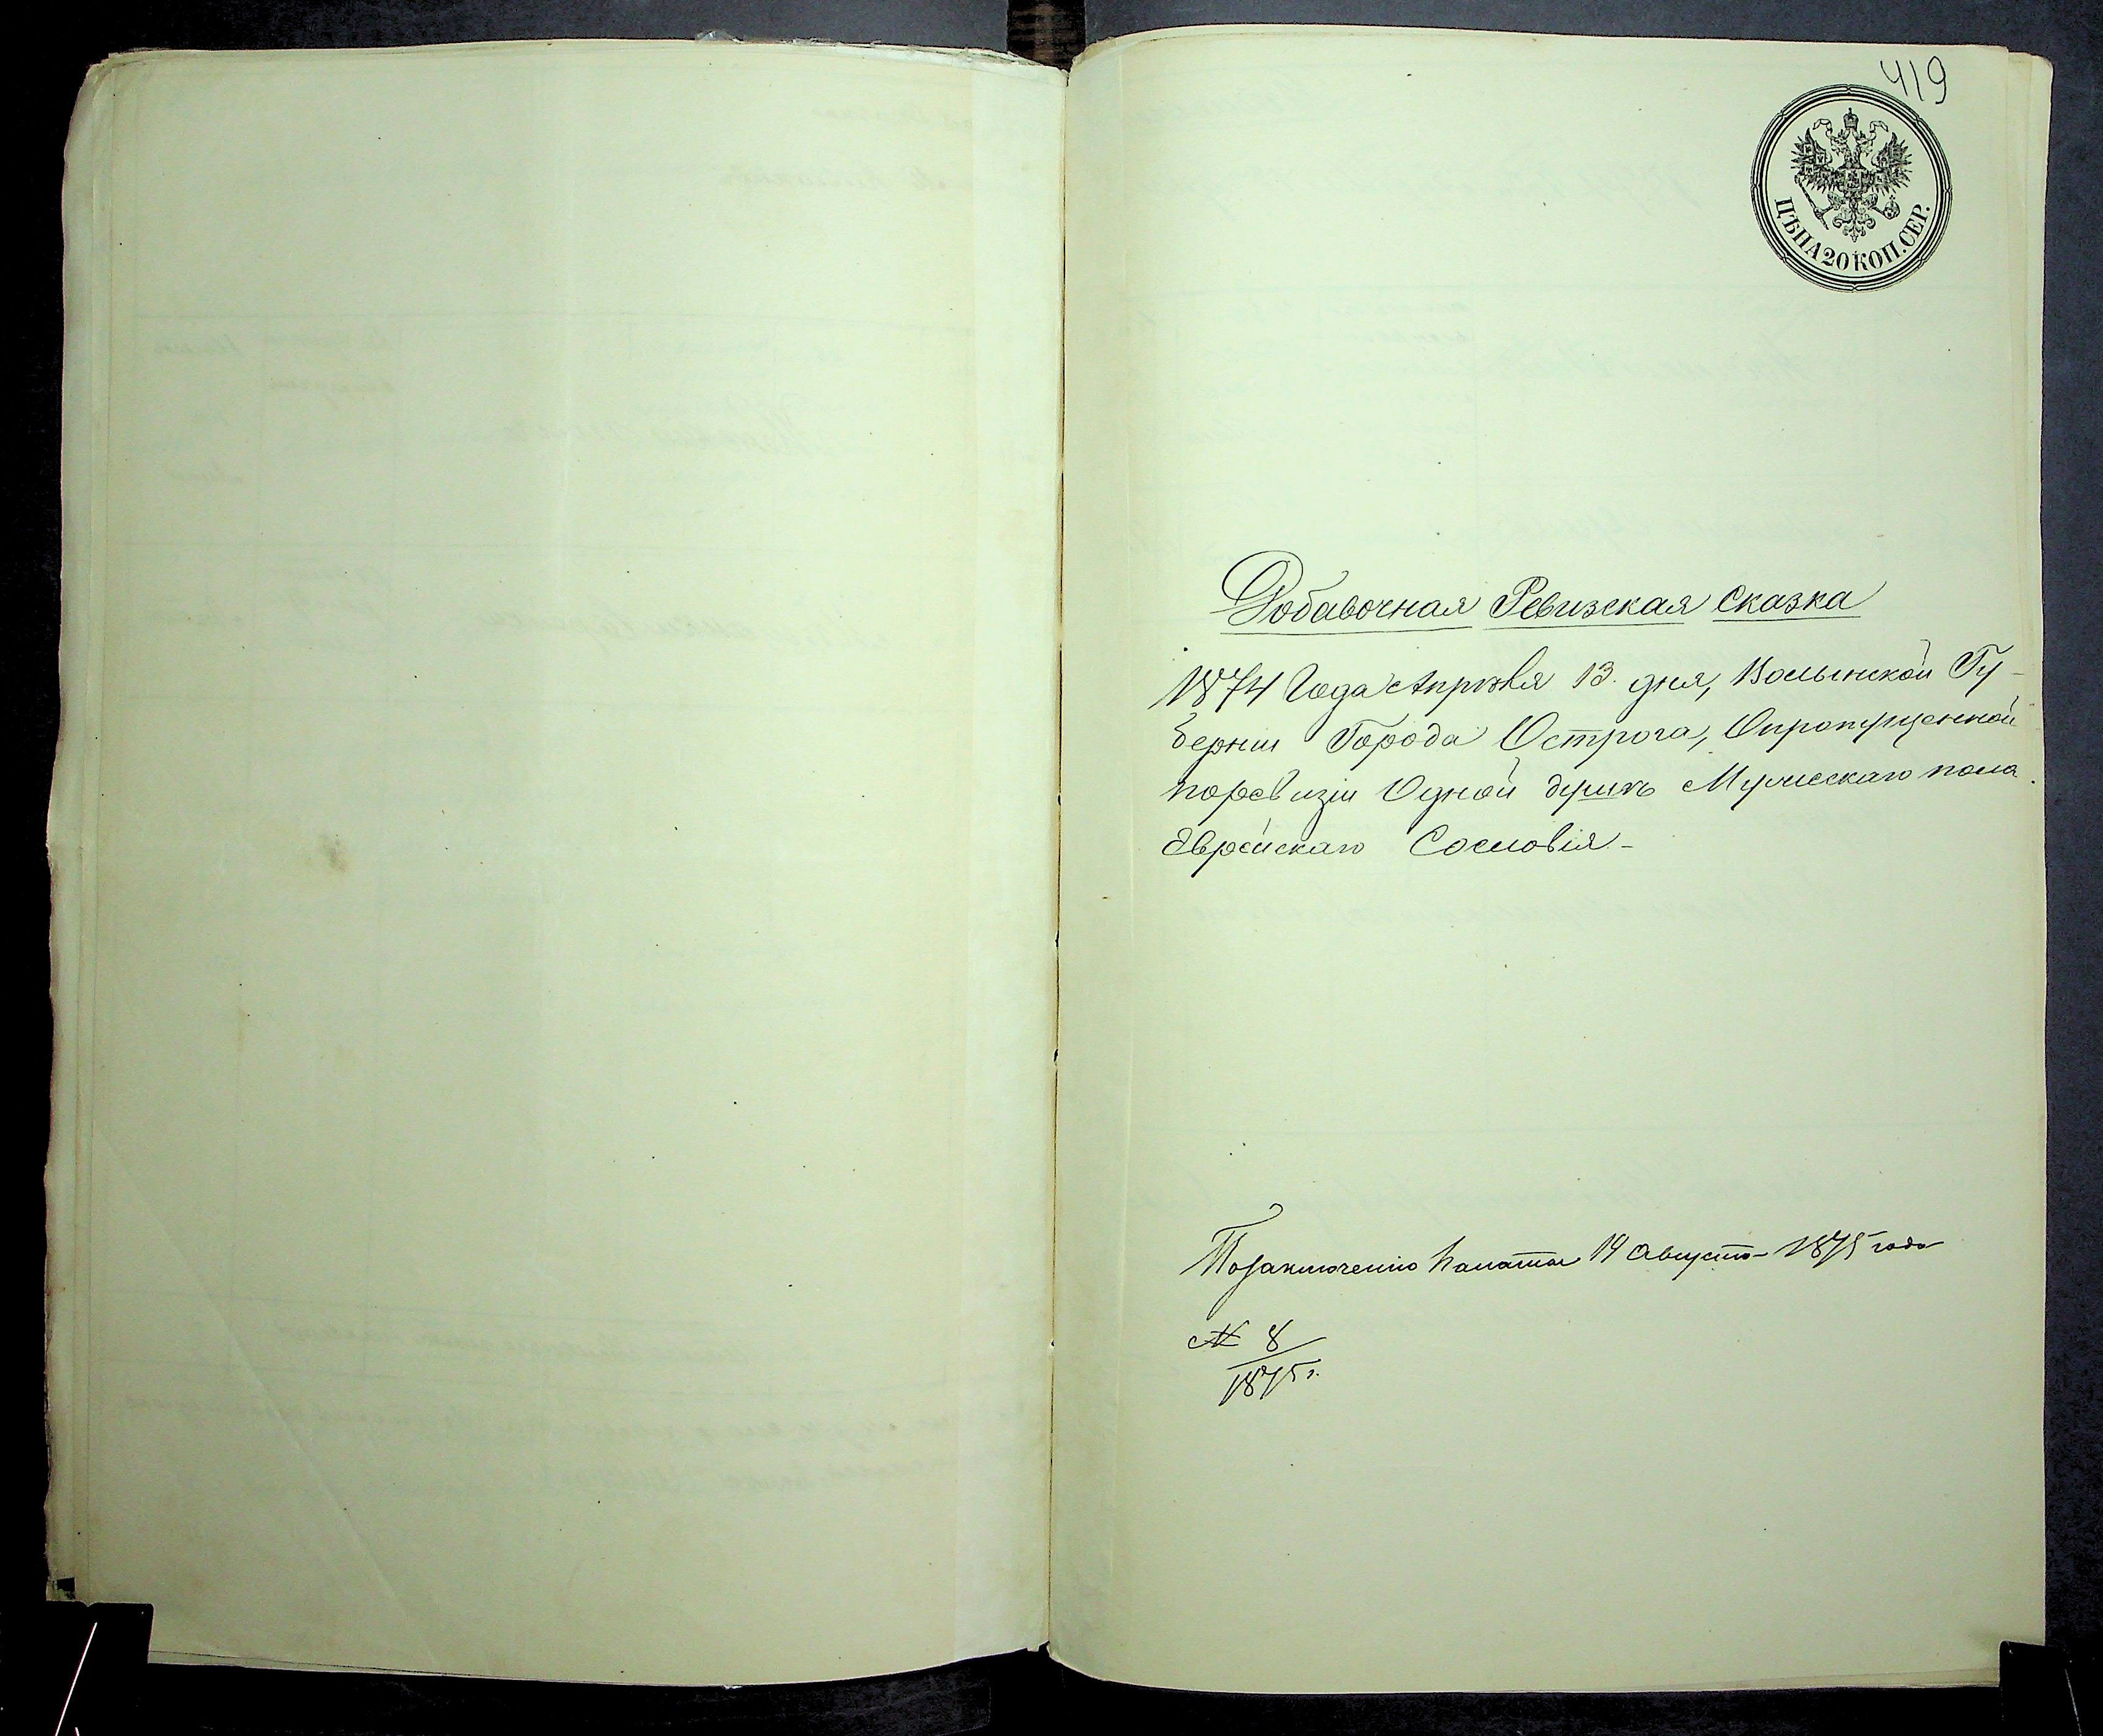 419
ЦѢНА 20 КОП. СЕР.
Добавочная Ревизская сказка
1874 Года Апрѣля 13. дня, Волынской Гу-
берніи Города Острога, Опропущенной
поревизіи Одной душѣ Мужескаго пола
Еврейскаго Сословія-
Позаключенію Палаты 19 Августа 1875 года
№ 8
1875 г.